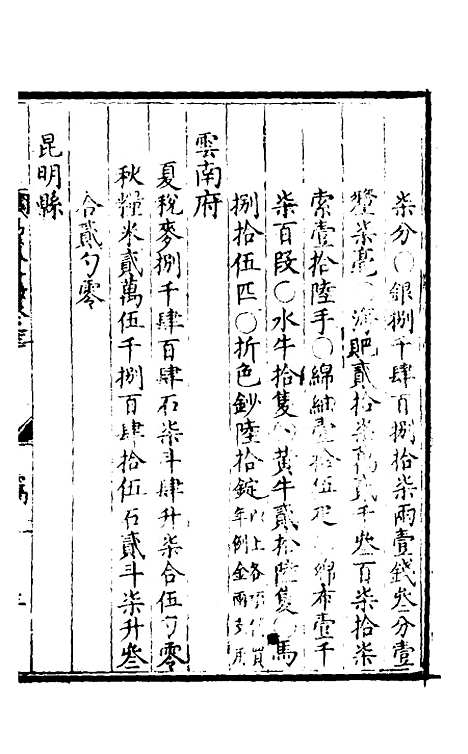 柒分○銀捌千肆百捌拾柒兩壹錢叁分壹
釐柒毫○海𧴩貳拾柒萬貳千叁百柒拾柒
索壹拾陸手○綿紬壹拾伍疋○綿布壹千
柒百段○水牛拾隻○黃牛貳拾陸隻○馬
捌拾伍匹○折色鈔陸拾錠以上各項
年例金兩
雲南府
夏稅麥捌千肆百肆石柒斗肆升柒合伍勺零
秋糧米貳萬伍千捌百肆拾伍石貳斗柒升叁
合貳勺零
昆明縣